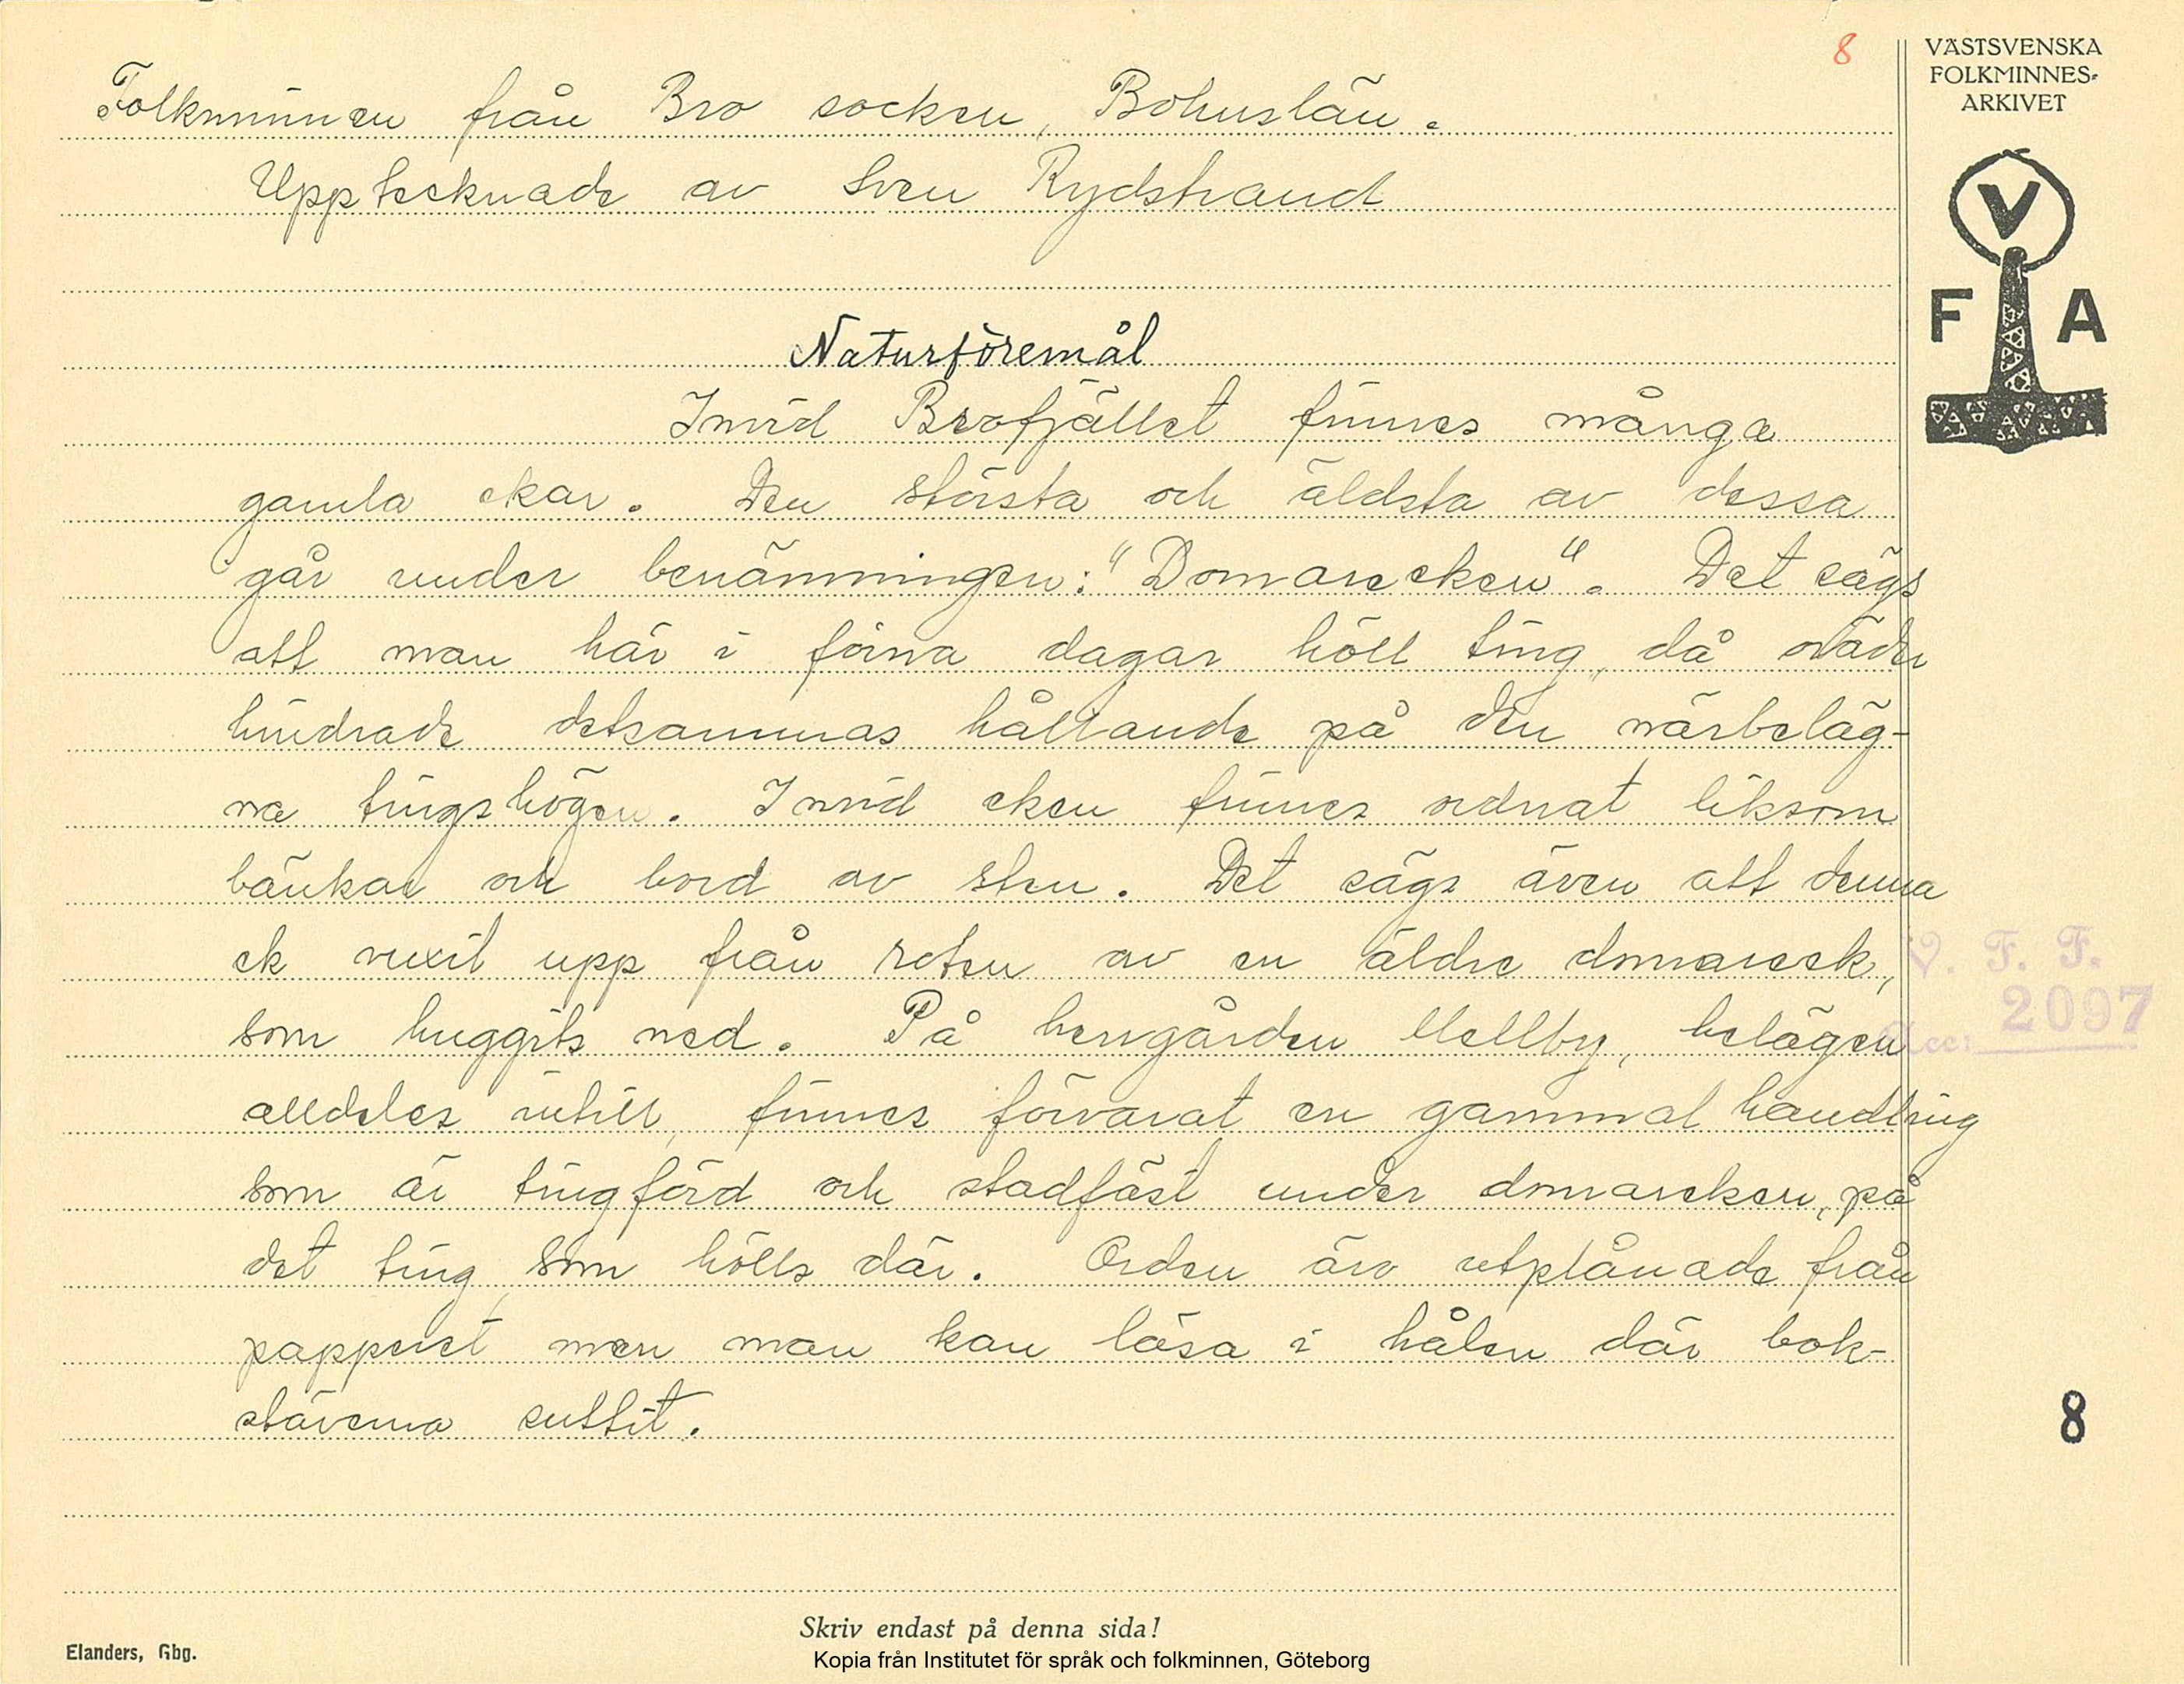 8
VÄSTSVENSKA
FOLKMINNES-
ARKIVET
V
F A
Folkminnen från Bro socken, Bohuslän.
Upptecknade av Sven Rydstrand
Naturföremål
Invid Brofjället finnes många
gamla ekar. Den största och äldsta av dessa
går under benämningen: "Domareeken". Det sägs
att man här i förra dagar höll ting, då oväder
hindrade detsammas hållande på den närbeläg-
na tingshögen. Invid eken finnes ordnat liksom
bänkar och bord av sten. Det sägs även att denna
ek vuxit upp från roten av en äldre domareek,
som huggits ned. På herrgården Mellby, belägen
alldeles intill, finnes förvarat en gammal handling
som är tingförd och stadfäst under domareken, på
det ting, som hölls där. Orden äro utplånade från
papperet men man kan läsa i hålen där bok-
stäverna suttit.
V. F. F.
Acc: 2097
8
Skriv endast på denna sida!
Elanders, Gbg.
Kopia från Institutet för språk och folkminnen, Göteborg